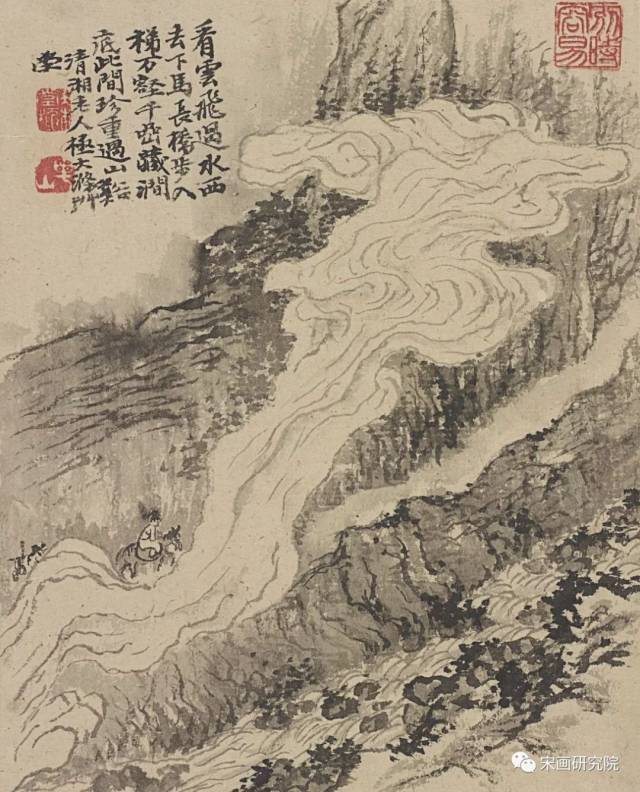 看雲飛過水西
去下馬長橋步入
梯万壑千巖藏澗
底此間珍重過山谿
清湘老人極大滌艸
堂
別時
容易
宋画研究院